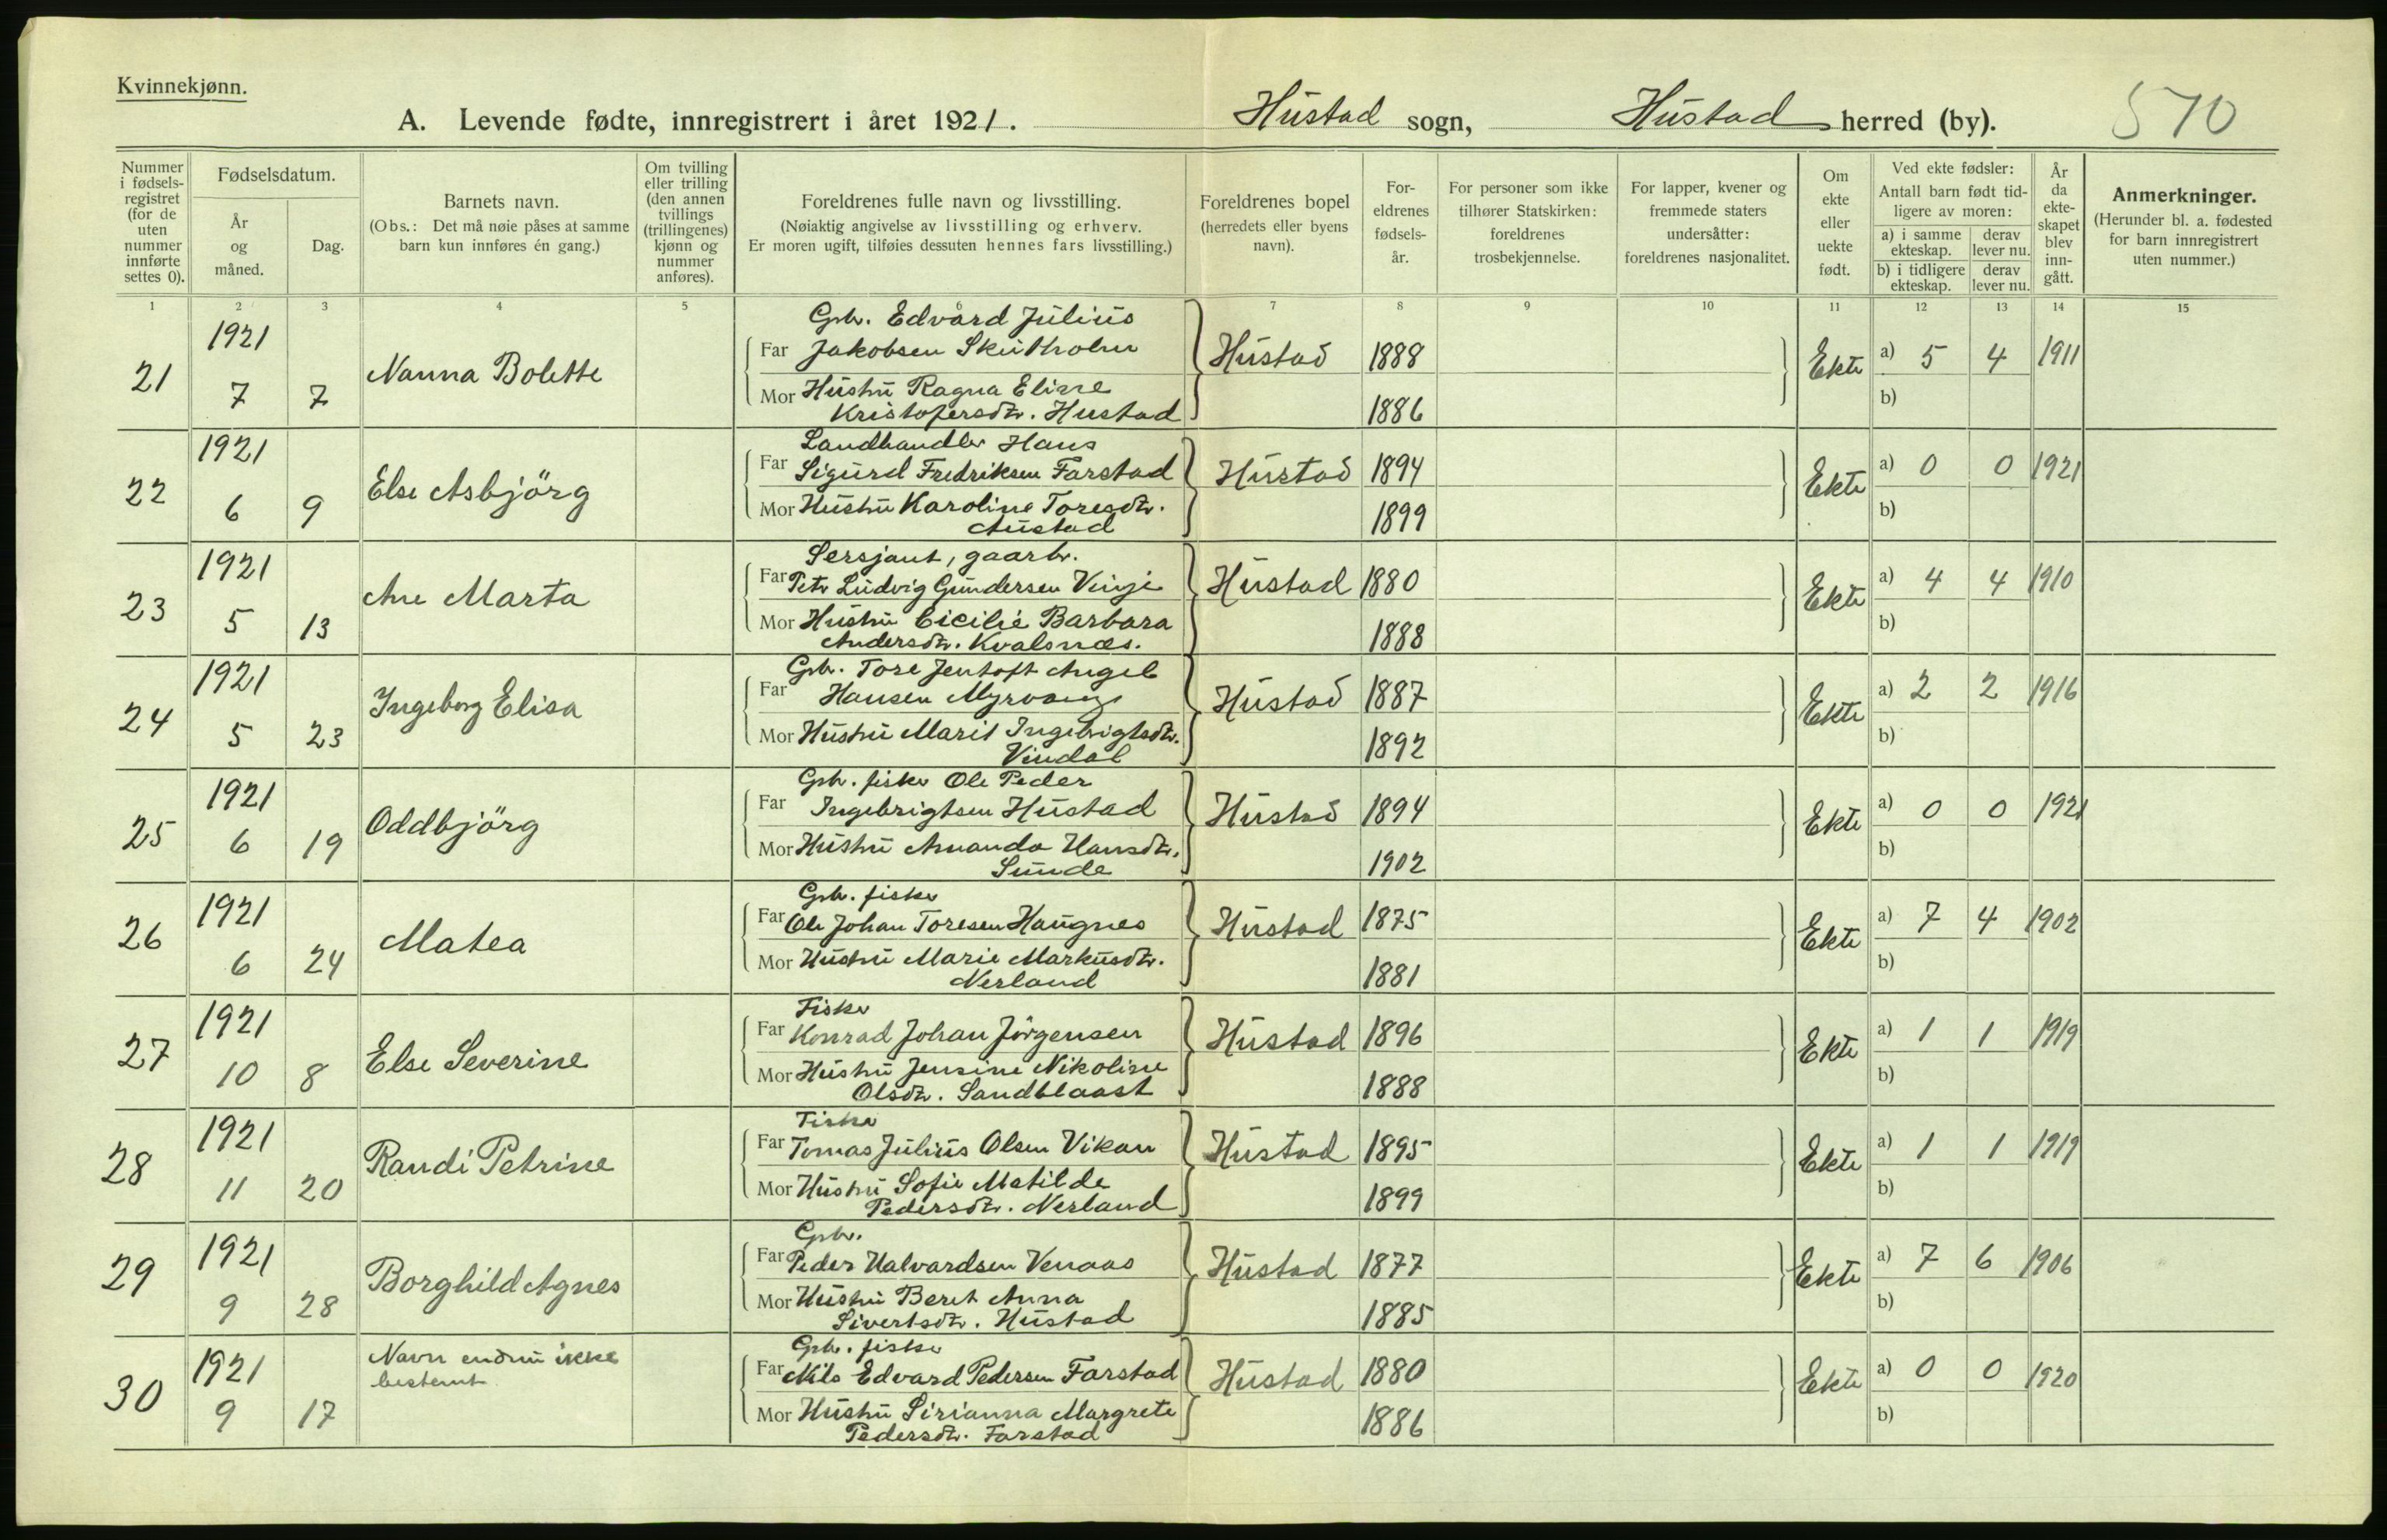 Kvinnekjønn.
A. Levende fødte, innregistrert i året 1921. Hustad sogn, Hustad herred (by). 570
Nummer i fødsels-registret (for de uten nummer innførte settes 0).
Fødselsdatum.
År og måned.
Dag.
Barnets navn.
(Obs.: Det må nøie påses at samme barn kun innføres én gang.)
Om tvilling eller trilling (den annen tvillings (trillingenes) kjønn og nummer anføres).
Foreldrenes fulle navn og livsstilling.
(Nøiaktig angivelse av livsstilling og erhverv.
Er moren ugift, tilføies dessuten hennes fars livsstilling.)
Foreldrenes bopel
(herredets eller byens navn).
For-eldrenes fødsels-år.
For personer som ikke tilhører Statskirken: foreldrenes trosbekjennelse.
For lapper, kvener og fremmede staters undersåtter: foreldrenes nasjonalitet.
Om ekte eller uekte født.
Ved ekte fødsler:
Antall barn født tid-ligere av moren:
a) i samme ekteskap. derav lever nu.
b) i tidligere ekteskap. derav lever nu.
År da ekte-skapet blev inn-gått.
Anmerkninger.
(Herunder bl. a. fødested for barn innregistrert uten nummer.)
1 2 3 4 5 6 7 8 9 10 11 12 13 14 15
21 1921 7 7 Nanna Bolette
Gbr. Edvard Julius
Far Jakobsen Skutholm Hustad 1888 Ekte a) 5 4 1911
Mor Hustru Ragna Eline
Kristofersdtr. Hustad 1886 b)
22 1921 6 9 Else Asbjörg
Landhandler Hans
Far Sigurd Fredriksen Farstad Hustad 1894 Ekte a) 0 0 1921
Mor Hustru Karoline Toresdtr.
Austad 1899 b)
23 1921 5 13 Ane Marta
Sersjant, gaarbr.
Far Petr Ludvig Gundersen Vinje Hustad 1880 Ekte a) 4 4 1910
Mor Hustru Cicilie Barbara
Andersdtr. Kvalsnæs. 1888 b)
24 1921 5 23 Ingeborg Elisa
Gbr. Tore Jentoft Angel
Far Hansen Myrvang Hustad 1887 Ekte a) 2 2 1916
Mor Hustru Marit Ingebrigtsdtr.
Vindal 1892 b)
25 1921 6 19 Oddbjörg
Gbr. fisker Ole Peder
Far Ingebrigtsen Hustad Hustad 1894 Ekte a) 0 0 1921
Mor Hustru Amanda Hansdtr.
Sunde 1902 b)
26 1921 6 24 Matea
Gbr. fisker
Far Ole Johan Toresen Haugnes Hustad 1875 Ekte a) 7 4 1902
Mor Hustru Marie Markusdtr.
Nerland 1881 b)
27 1921 10 8 Else Severine
Fisker
Far Konrad Johan Jörgensen Hustad 1896 Ekte a) 1 1 1919
Mor Hustru Jensine Nikoline
Olsdtr. Sandblaast 1888 b)
28 1921 11 20 Randi Petrine
Fisker
Far Tomas Julius Olsen Vikan Hustad 1895 Ekte a) 1 1 1919
Mor Hustru Sofie Matilde
Pedersdtr. Nerland 1899 b)
29 1921 9 28 Borghild Agnes
Gbr.
Far Peder Halvardsen Venaas Hustad 1877 Ekte a) 7 6 1906
Mor Hustru Beret Anna
Sivertsdtr. Hustad 1885 b)
30 1921 9 17 Navn endnu ikke bestemt
Gbr. fisker
Far Nils Edvard Pedersen Farstad Hustad 1880 Ekte a) 0 0 1920
Mor Hustru Sirianna Margrete
Pedersdtr. Farstad 1886 b)